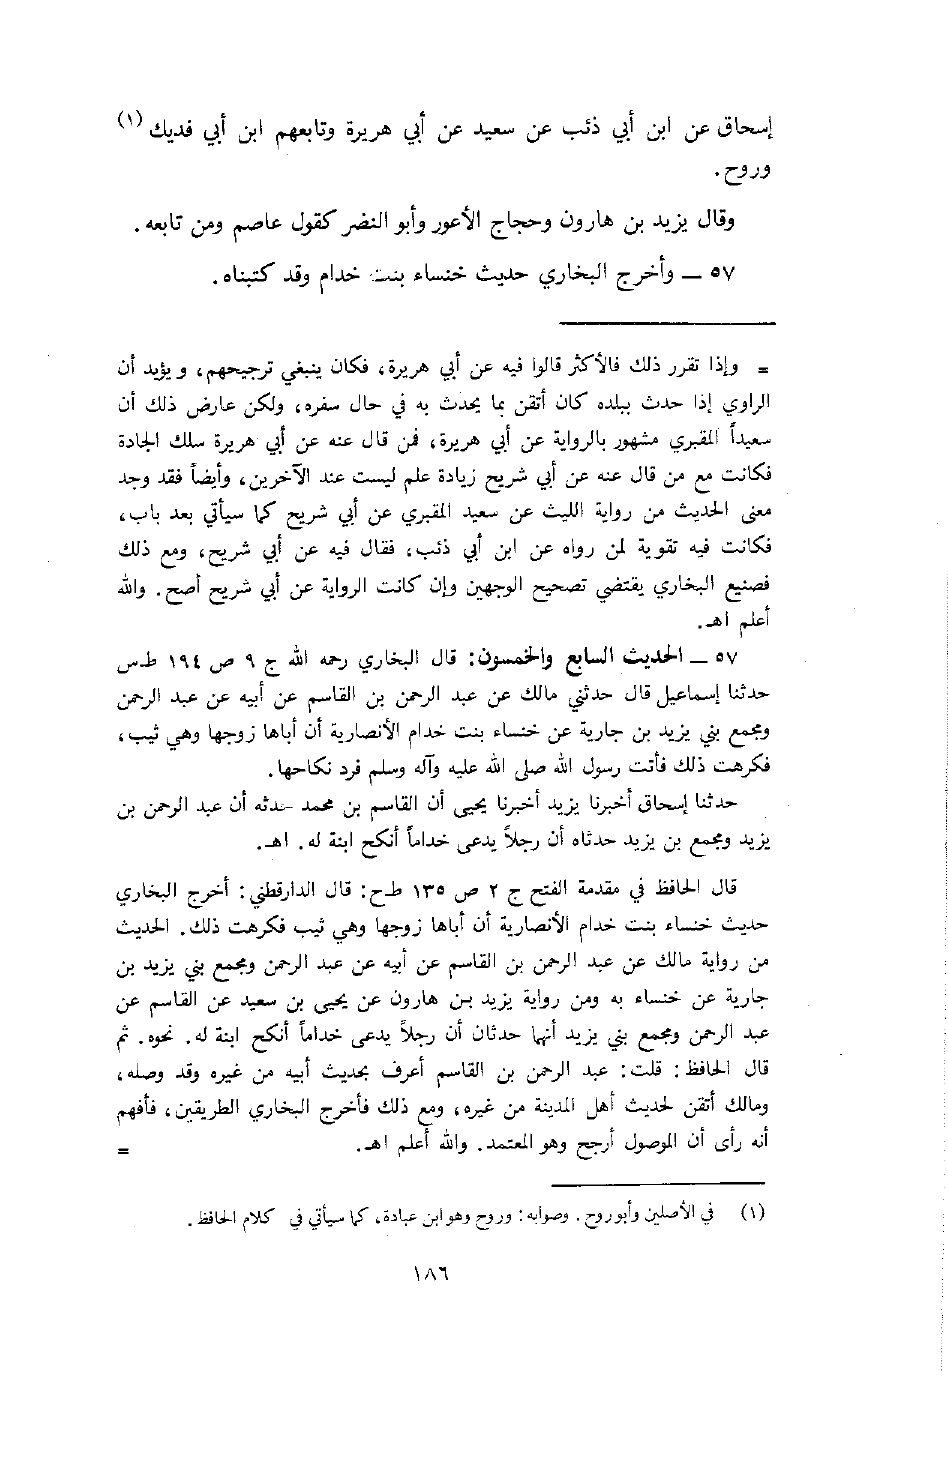 إسحاق عن ابن أبي ذئب عن سعيد عن أبي هريرة وتابعهم ابن أبي فديك (١)
وروح.
وقال يزيد بن هارون وحجاج الأعور وأبو النضر كقول عاصم ومن تابعه.
٥٧ ــ وأخرج البخاري حديث خنساء بنت خدام وقد كتبناه.
= وإذا تقرر ذلك فالأكثر قالوا فيه عن أبي هريرة، فكان ينبغي ترجيحهم، ويؤيد أن
الراوي إذا حدث ببلده كان أتقن بما يحدث به في حال سفره، ولكن عارض ذلك أن
سعيداً المقبري مشهور بالرواية عن أبي هريرة، فمن قال عنه عن أبي هريرة سلك الجادة
فكانت مع من قال عنه عن أبي شريح زيادة علم ليست عند الآخرين، وأيضاً فقد وجد
معنى الحديث من رواية الليث عن سعيد المقبري عن أبي شريح كما سيأتي بعد باب،
فكانت فيه تقوية لمن رواه عن ابن أبي ذئب، فقال فيه عن أبي شريح، ومع ذلك
فصنيع البخاري يقتضي تصحيح الوجهين وإن كانت الرواية عن أبي شريح أصح. والله
أعلم اهـ.
٥٧ ــ الحديث السابع والخمسون: قال البخاري رحمه الله ج ٩ ص ١٩٤ طـس
حدثنا إسماعيل قال حدثني مالك عن عبد الرحمن بن القاسم عن أبيه عن عبد الرحمن
ومجمع بني يزيد بن جارية عن خنساء بنت خدام الأنصارية أن أباها زوجها وهي ثيب،
فكرهت ذلك فأتت رسول الله صلى الله عليه وآله وسلم فرد نكاحها.
حدثنا إسحاق أخبرنا يزيد أخبرنا يحيى أن القاسم بن محمد حدثه أن عبد الرحمن بن
يزيد ومجمع بن يزيد حدثاه أن رجلاً يدعى خداماً أنكح ابنة له. اهـ.
قال الحافظ في مقدمة الفتح ج ٢ ص ١٣٥ طـح: قال الدارقطني: أخرج البخاري
حديث خنساء بنت خدام الأنصارية أن أباها زوجها وهي ثيب فكرهت ذلك. الحديث
من رواية مالك عن عبد الرحمن بن القاسم عن أبيه عن عبد الرحمن ومجمع بني يزيد بن
جارية عن خنساء به ومن رواية يزيد بن هارون عن يحيى بن سعيد عن القاسم عن
عبد الرحمن ومجمع بني يزيد أنهما حدثان أن رجلاً يدعى خداماً أنكح ابنة له. نحوه. ثم
قال الحافظ: قلت: عبد الرحمن بن القاسم أعرف بحديث أبيه من غيره وقد وصله،
ومالك أتقن لحديث أهل المدينة من غيره، ومع ذلك فأخرج البخاري الطريقين، فأفهم
أنه رأى أن الموصول أرجح وهو المعتمد. والله أعلم اهـ. =
(١) في الأصلين وأبو روح. وصوابه: وروح وهو ابن عبادة، كما سيأتي في كلام الحافظ.
١٨٦